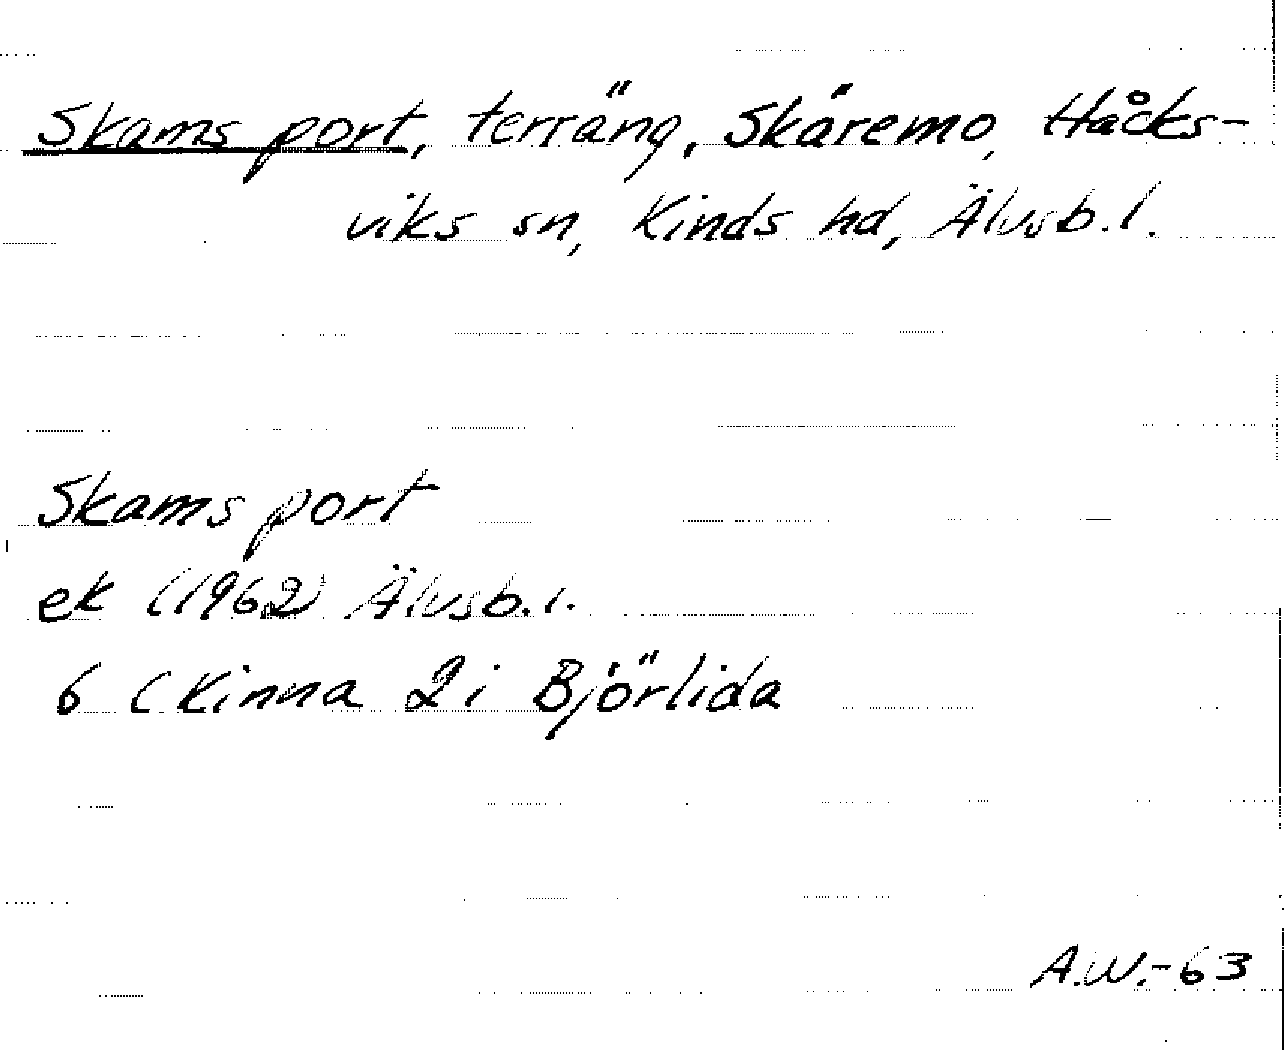 Skams port, terräng, Skäremo, Håcks-
viks sn, Kinds hd, Älvsb. l.
Skams port
ek (1962) Älvsb. l.
6 (Kinna 2i Björlida
A.W.-63